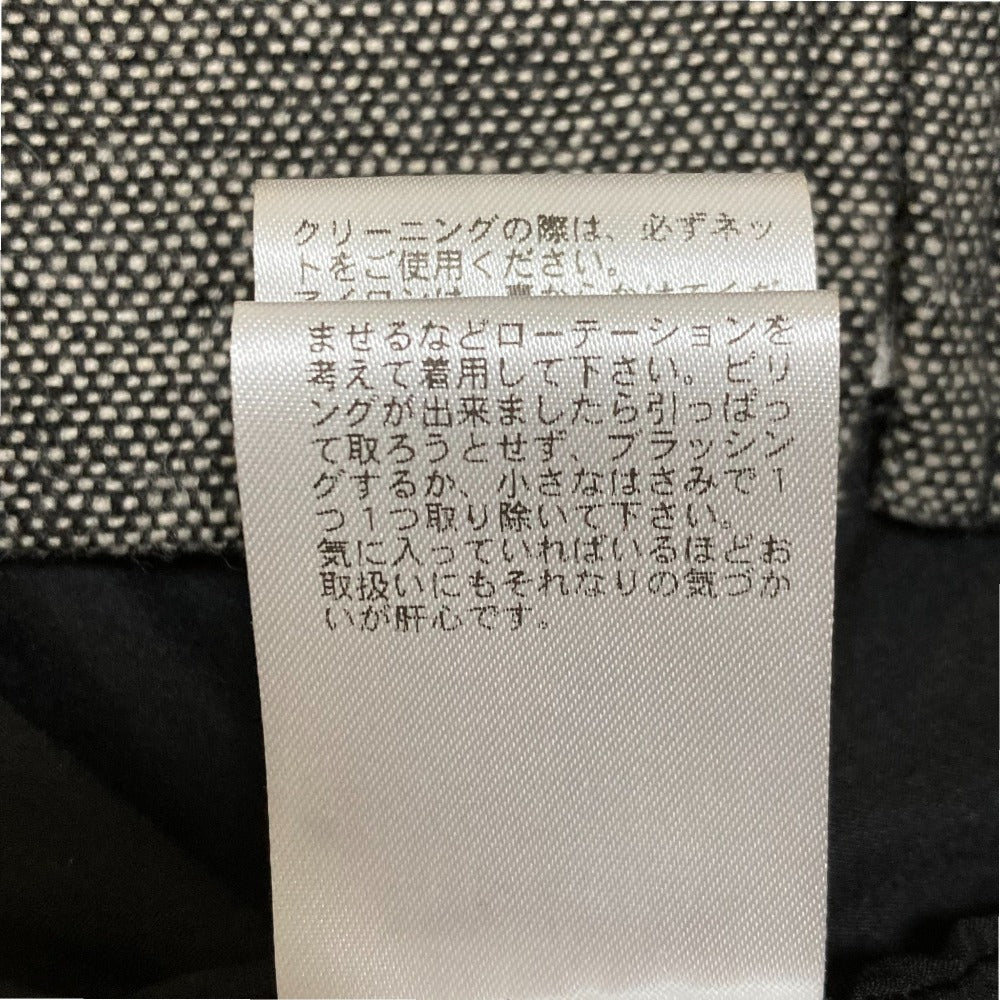 クリーニングの際は、必ずネッ
トをご使用ください。
アイロンは、裏からかけてくだ
ませるなどローテーションを
考えて着用して下さい。ピリ
ングが出来ましたら引っぱっ
て取ろうとせず、ブラッシン
グするか、小さなはさみで1
つ1つ取り除いて下さい。
気に入っていればいるほどお
取扱いにもそれなりの気づか
いが肝心です。